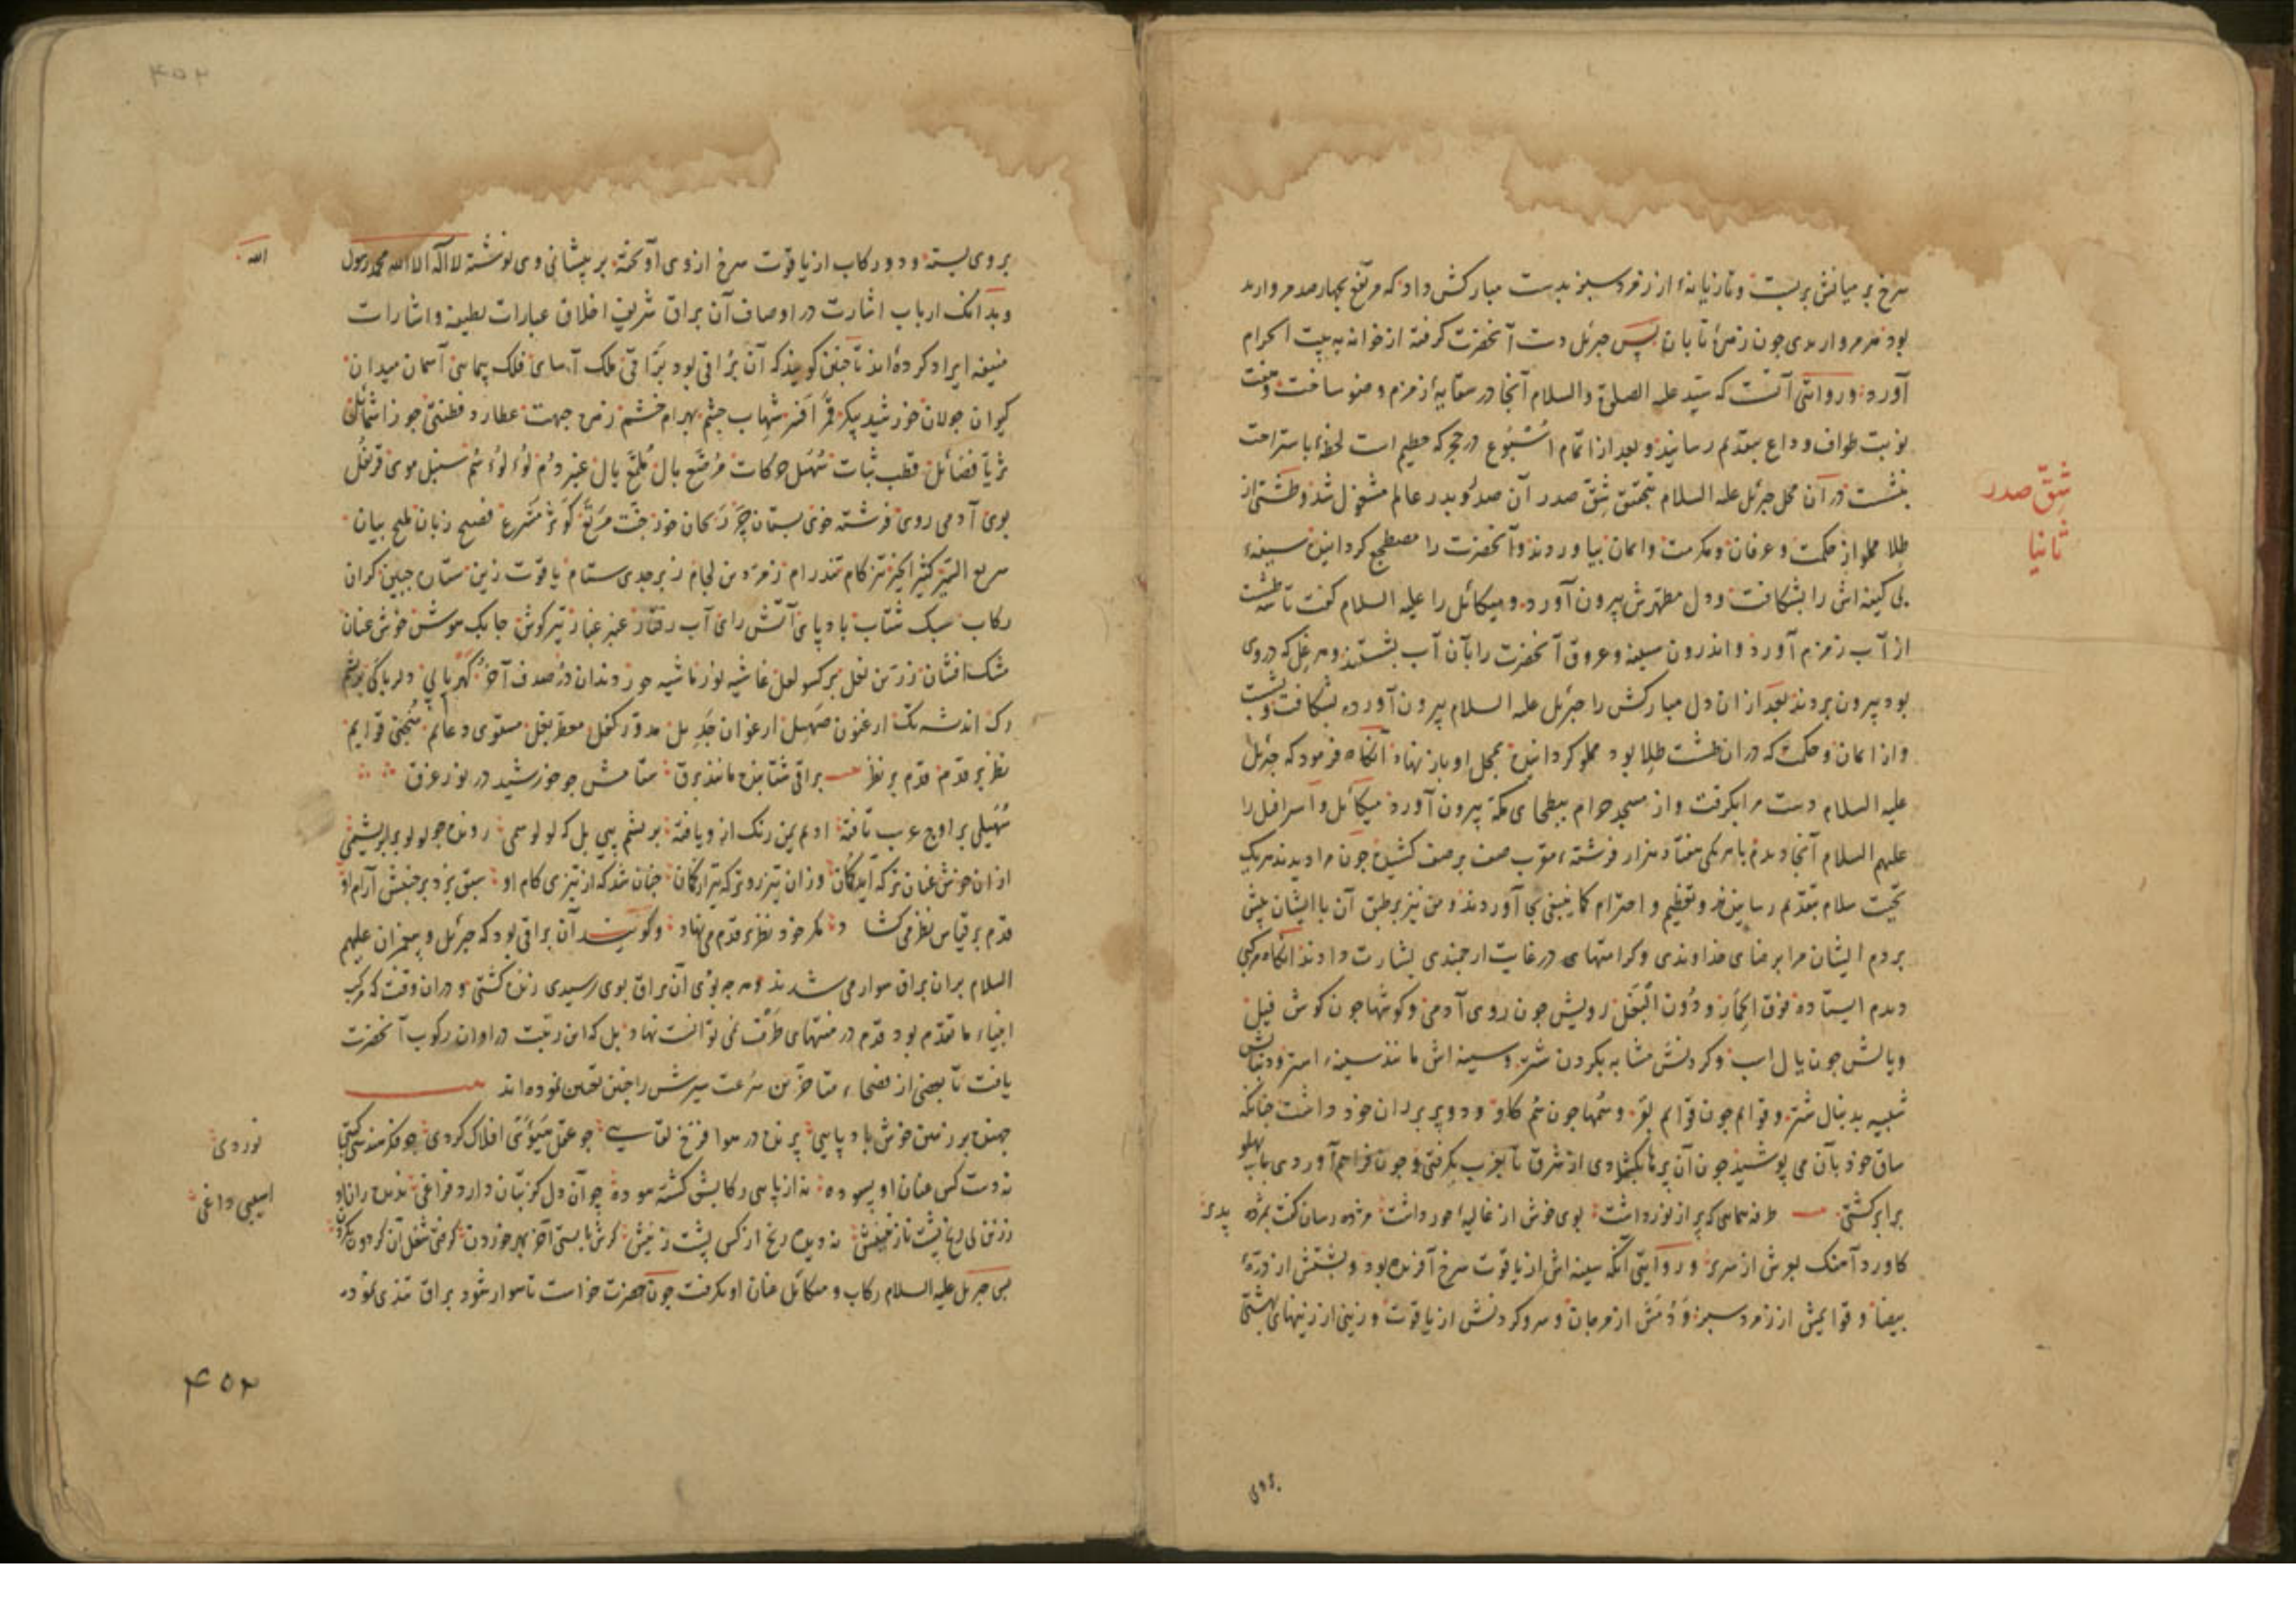 سرخ بر میانش بربست و تازیانهٔ از زمرد سبز بدست مبارکش داد که مرصّع بچهارصد مروارید
بود هر مرواریدی چون زهرهٔ تابان پس جبرئیل دست آنحضرت گرفته از خوانه به بیت الحرام
آورد و روایتی آنست که سیّد علیه الصلوة والسلام آنجا در سقایهٔ زمزم وضو ساخت و هفت
نوبت طواف وداع بتقدیم رسانید و بعد از اتمام اُسْبُوع در حجر که حطیم است لحظهٔ باستراحت
بنشست در آن محل جبرئیل علیه السلام بتحقیق شقّ صدر آن صدر و بدر عالم مشغول شد و طشتی از
شقّ صدر
ثانیا
طلا مملو از حکمت و عرفان و مکرمت و ایمان بیاوردند و آنحضرت را مضطجع گردانیده سینهٔ
بی کینه اش را بشکافت و دل مطهرش بیرون آورد و میکائیل را علیه السلام گفت تا سه طشت
از آب زمزم آورد و اندرون سینه و عروق آنحضرت را بآن آب بشستند و هر غل که در وی
بود بیرون بردند بعد از ان دل مبارکش را جبرئیل علیه السلام بیرون آورده بشکافت و بشست
و از ایمان و حکمت که در ان طشت طلا بود مملو گردانیده بمحل او باز نهاد آنگاه فرمود که جبرئیل
علیه السلام دست مرا بگرفت و از مسجد حرام ببطحای مکّه بیرون آورد میکائیل و اسرافیل را
علیهم السلام آنجا دیدم با هر یکی هفتاد هزار فرشتهٔ مقرّب صف بر صف کشیده چون مرا دیدند هر یک
تحیّت سلام بتقدیم رسانیدند و تعظیم و احترام کما ینبغی بجا آوردند و من نیز بر طبق آن با ایشان پیش
بردم ایشان مرا برضای خداوندی و کرامتهای در غایت ارجمندی بشارت دادند آنگاه مرکبی
دیدم ایستاده فوق الحمار و دون البَغَل رویش چون روی آدمی و گوشها چون گوش فیل
و یالش چون یال اسب و گردنش مشابه بگردن شتر و سینه اش مانند سینهٔ استر و دنبالش
شبیه بدنبال شتر و قوایم چون قوایم بقر و سُمها چون سُم گاو و دو پر بر ران خود داشت چنانکه
ساق خود بآن می پوشید چون آن پرها بگشادی از مشرق تا بمغرب بگرفتی و چون فراهم آوردی باپهلو
برابر گشتی طرفه همایی که پر از نور داشت بوی خوش از غالیهٔ حور داشت مژده رسان گشت بمژده پدی
گاورد آهنگ بپوش از سری و روایتی آنکه سینه اش از یاقوت سرخ آفریده بود و پشتش از درّهٔ
بیضا و قوایمش از زمرد سبز و دُمَش از مرجان و سر و گردنش از یاقوت و زینی از زینهای بهشتی
بروی
بروی بسته و دو رکاب از یاقوت سرخ از وی آویخته بر پیشانی وی نوشته لا اله الا الله محمد رسول
الله
و بدانک ارباب اشارت در اوصاف آن براق شریف اخلاق عبارات لطیفه و اشارات
منیفه ایراد کرده اند تا چنین گویند که آن بُراقی بود برّاقی ملک آسای فلک پیمای آسمان میدان
کیوان جولان خورشید پیکر قمر افسر شهاب چشم بهرام خشم زهره جبهت عطارد فطنت جوزا شمائل
ثریّا فضائل قطب ثبات سُهَیل حرکات مرصّع بال مُلمّع یال عنبر دُم لُؤلُؤ سُم سنبل موی قرنفل
بوی آدمی روی فرشته خوی بستان چَر ریحان خور جنّت مرتع کوثر مشرع فصیح زبان ملیح بیان
سریع السیر کثیر الخیر تیز گام تند رام زمرّدین لجام زبرجدی ستام یاقوت زین ستاره جبین گران
رکاب سبک شتاب بادپای آتش رای آب رفتار عنبر غبار تیر گوش چابک هوش خوش عنان
مشک افشان زرّین نعل برگستوان لعل غاشیه نور ناشیه حور دندان دُر صدف آخُر گهربایی دلربایی بریشم
رگ اندیشه تگ ارغنون صهیل ارغوان جَدِیل مدوّر کفل معطّر بغل مقوّی دعایم مُنجّی قوایم
نظر بر قدم قدم بر نظر براقی شتابنده مانند برق ستامش چو خورشید در نور غرق
سُهَیلی بر اوج عرب تافته ادیم یمن رنگ ازو یافته بریشم پی بل که لولو سُمی رونده چو لولو بر ابریشمی
از ان خوش عنان تر که آید گمان وزان تیزروتر که تیر از کمان چنان شد که از تیزی گام او سبق برد بر جنبش آرام او
قدم بر قیاس نظر می گشاد مگر خود نظر بر قدم می نهاد و گویند آن براقی بود که جبرئیل و پیغمبران علیهم
السلام بران براق سوار می شدند و بهر چه بوی آن براق بوی رسیدی زنده گشتی و دران وقت که مرکب
انبیاء ما تقدّم بود قدم در منتهای طَرْف نمی توانست نهاد بل که این رتبت در اوان رکوب آنحضرت
یافت تا بعضی از فصحاء متأخرین سُرعت سیرش را چنین تعیین نموده اند
جهنده بر زمین خوش بادپایی پرنده در هوا فرّخ لقایی چو عقل سَیْوَتی افلاک گردی چو فکر مهندس گیتی
نوردی
نه دست کس عنان او بسوده نه از پایی رکابش گشته سوده چو آن دل کز بتان دارد فراغی ندیده رانِ او
آسیبِ داغی
پس جبرئیل علیه السلام رکاب و میکائیل عنان او بگرفت چون حضرت خواست تا سوار شود براق تندی نمود
۴۵۲